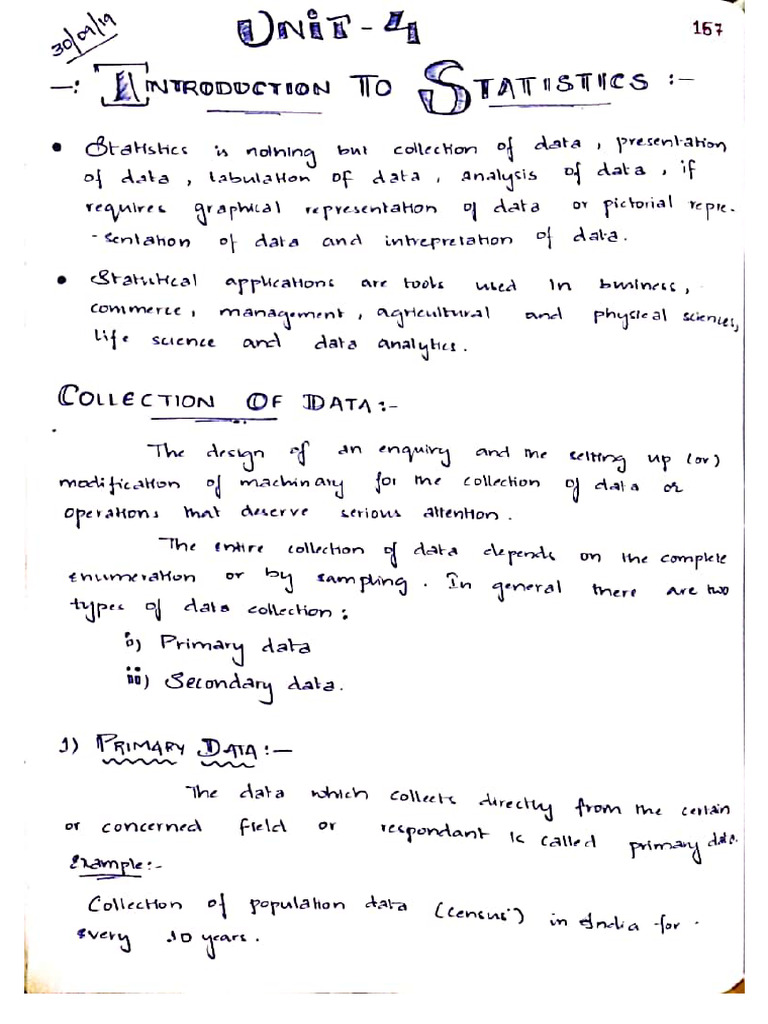 30/09/19
UNIT-4
157
-: INTRODUCTION TO STATISTICS :-
• Statistics is nothing but collection of data, presentation
of data, tabulation of data, analysis of data, if
requires graphical representation of data or pictorial repre-
-sentation of data and intrepretation of data.
• Statistical applications are tools used in business,
commerce, management, agricultural and physical sciences,
life science and data analytics.
COLLECTION OF DATA:-
The design of an enquiry and the setting up (or)
modification of machinary for the collection of data or
operations that deserve serious attention.
The entire collection of data depends on the complete
enumeration or by sampling. In general there are two
types of data collection:
i) Primary data
ii) Secondary data.
1) PRIMARY DATA:-
The data which collects directly from the certain
or concerned field or respondant is called primary data.
Example:-
Collection of population data (census) in India for
every 10 years.